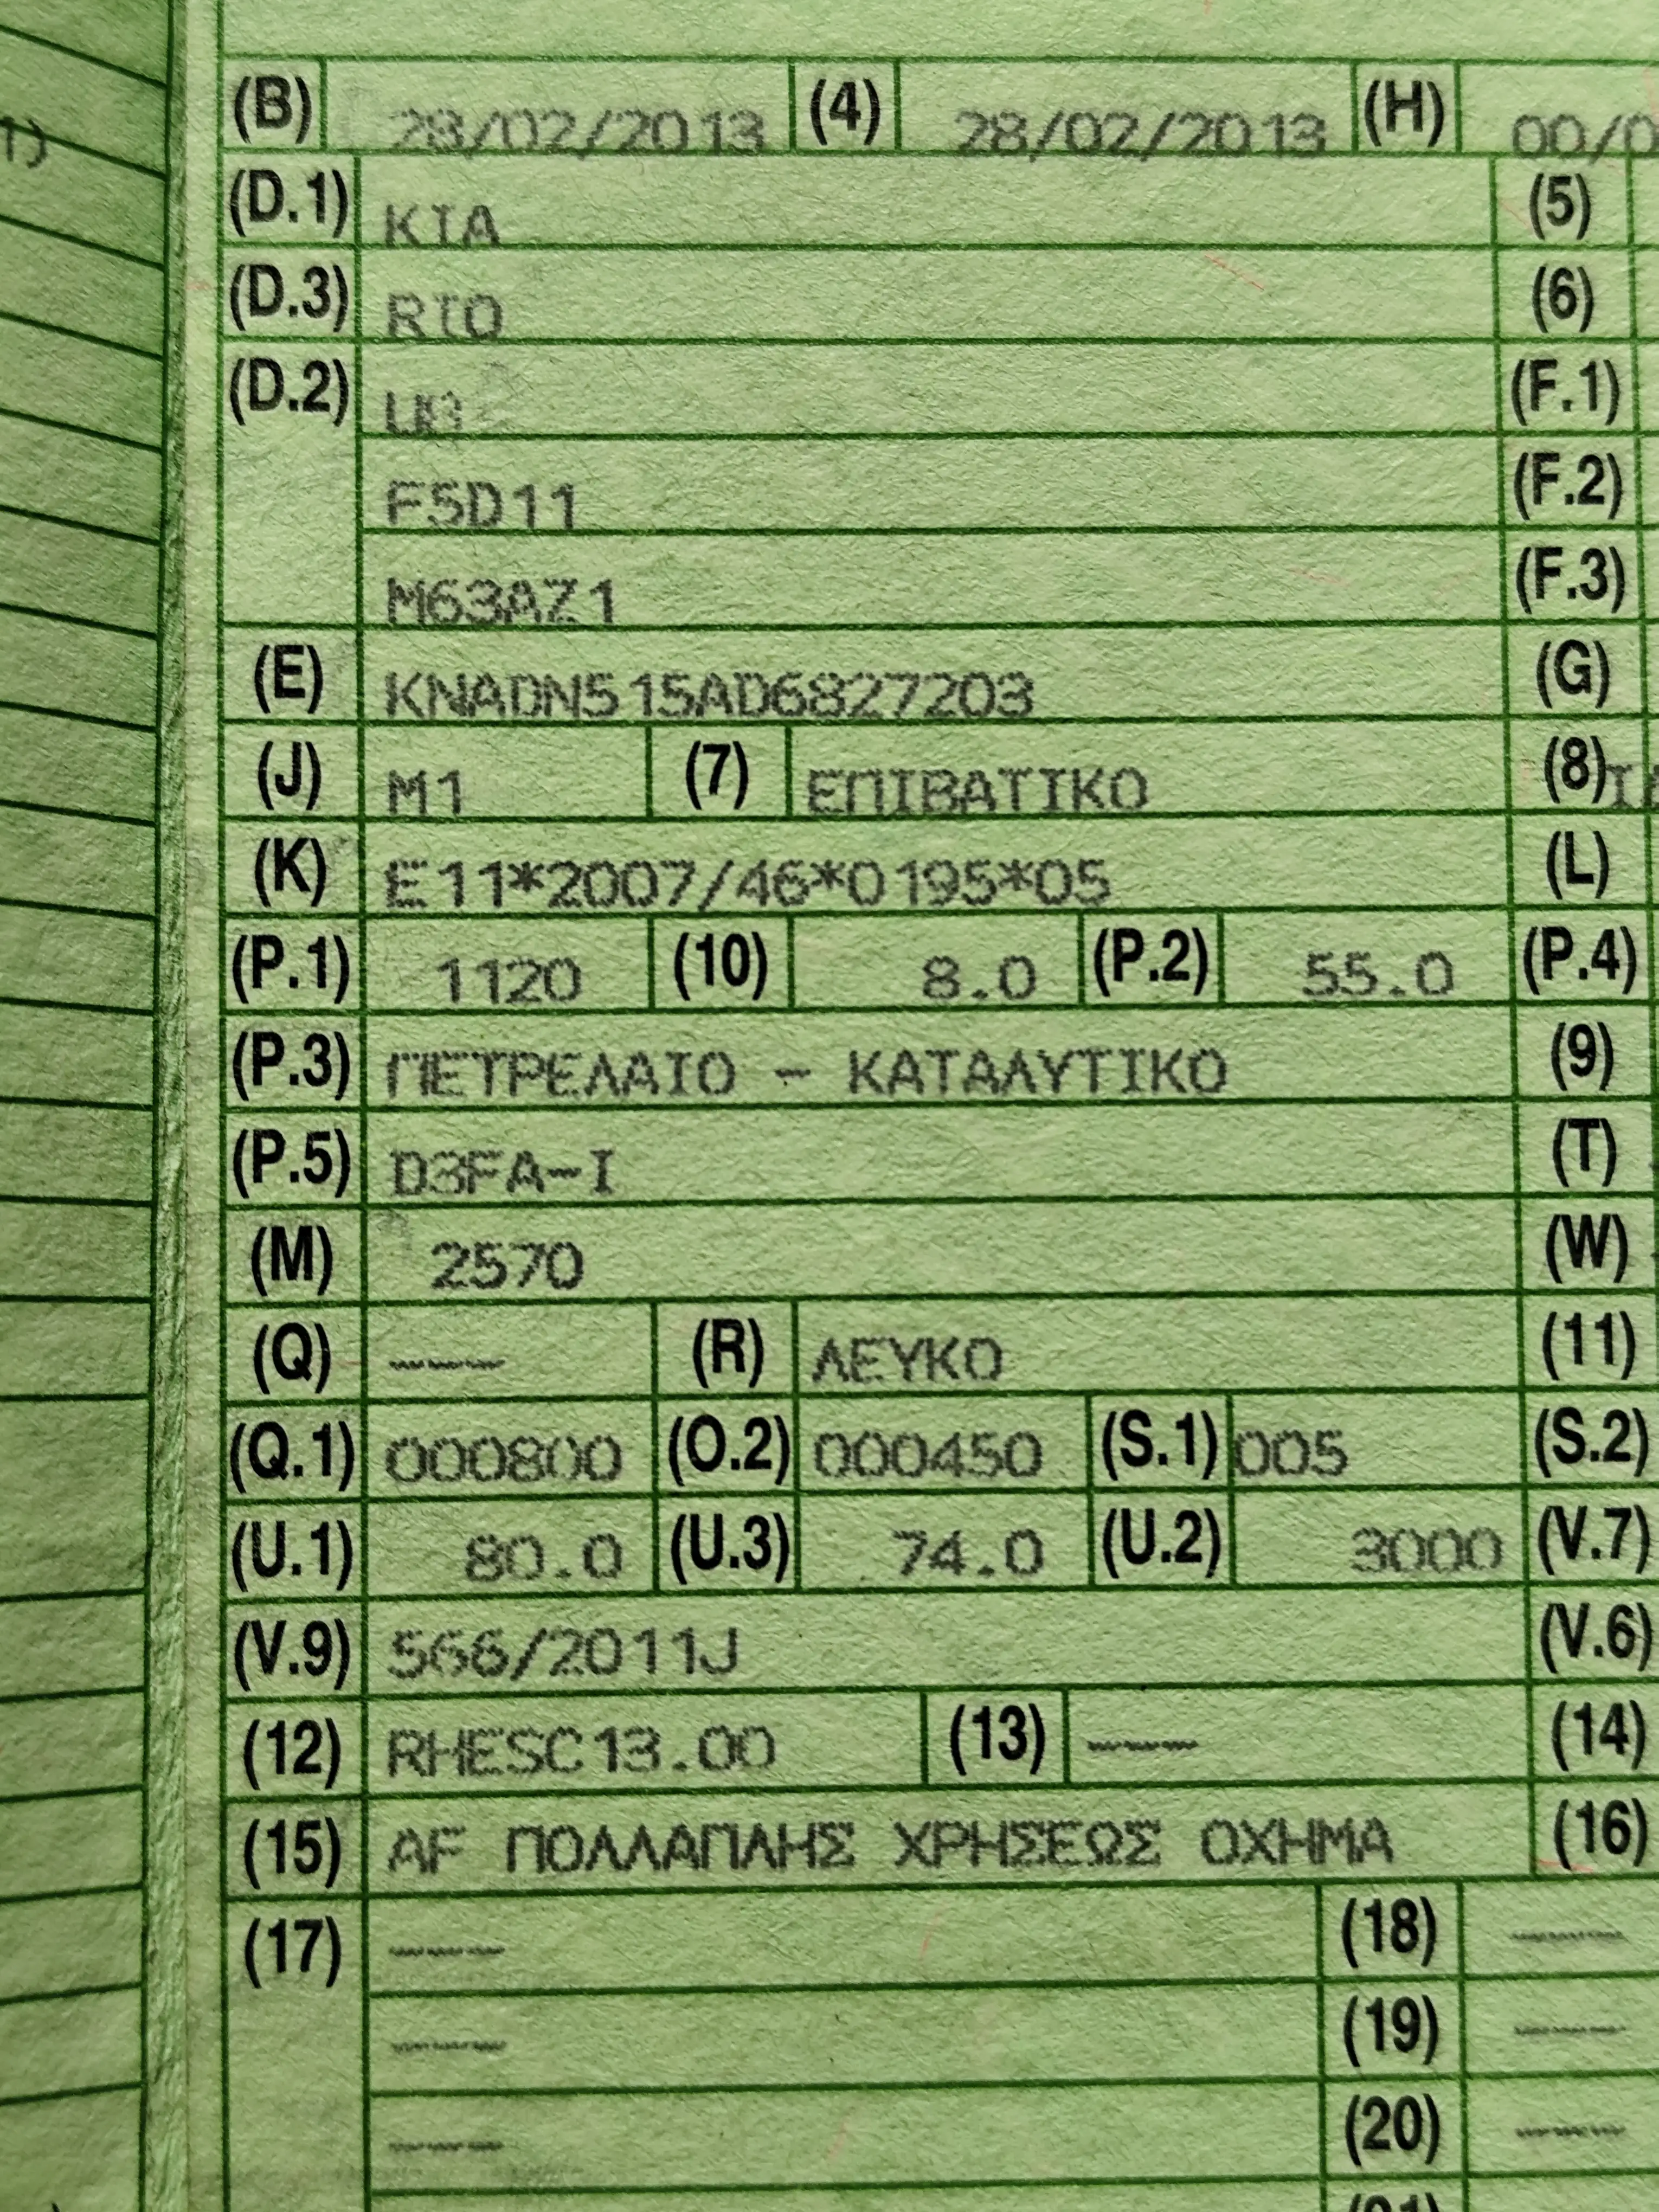 (B) 28/02/2013 (4) 28/02/2013 (H) 00/0
1)
(D.1) KIA (5)
(D.3) RIO (6)
(D.2) UB (F.1)
F5D11 (F.2)
M63AZ1 (F.3)
(E) KNADN515AD6827203 (G)
(J) M1 (7) ΕΠΙΒΑΤΙΚΟ (8)
(K) E11*2007/46*0195*05 (L)
(P.1) 1120 (10) 8.0 (P.2) 55.0 (P.4)
(P.3) ΠΕΤΡΕΛΑΙΟ - ΚΑΤΑΛΥΤΙΚΟ (9)
(P.5) D3FA-I (T)
(M) 2570 (W)
(Q) ---- (R) ΛΕΥΚΟ (11)
(Q.1) 000800 (O.2) 000450 (S.1) 005 (S.2)
(U.1) 80.0 (U.3) 74.0 (U.2) 3000 (V.7)
(V.9) 566/2011J (V.6)
(12) RHESC13.00 (13) ---- (14)
(15) AF ΠΟΛΛΑΠΛΗΣ ΧΡΗΣΕΩΣ ΟΧΗΜΑ (16)
(17) ---- (18) ----
---- (19) ----
---- (20) ----
(21)